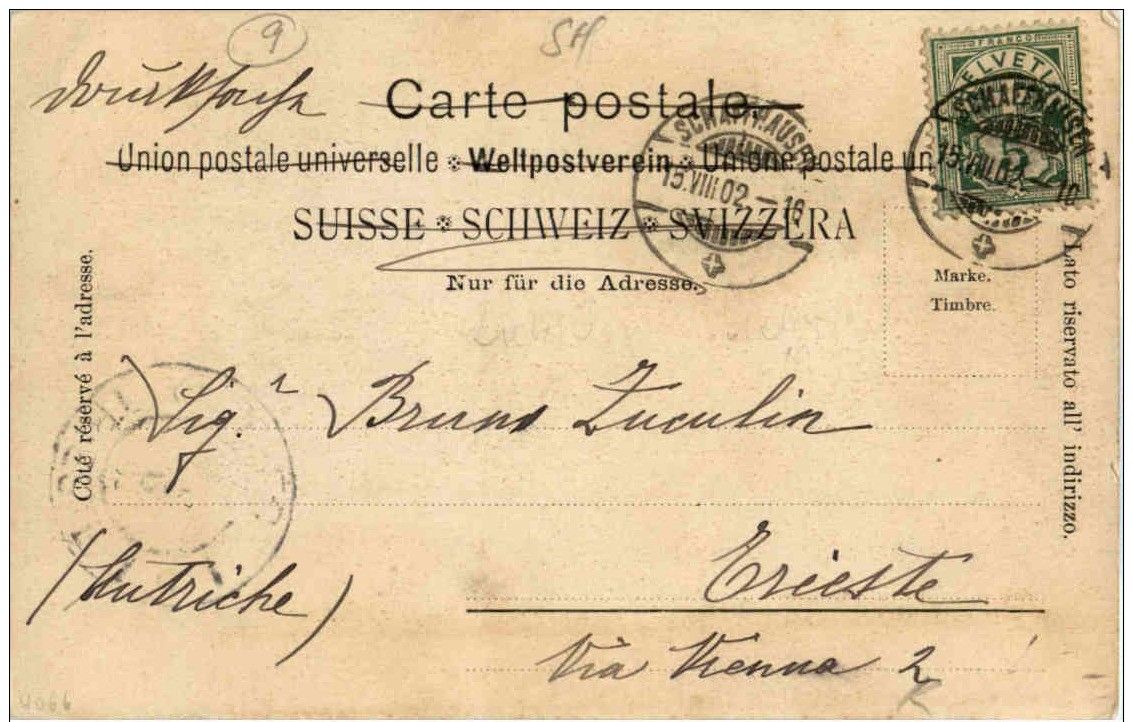 9
SH
Drucksache
Carte postale.
Union postale universelle * Weltpostverein * Unione postale un
SUISSE * SCHWEIZ * SVIZZERA
Nur für die Adresse.
FRANCO
HELVETIA
5
SCHAFFHAUSEN
15.VIII.02.–10
SCHAFFHAUSEN
15.VIII.02.–10
Marke.
Timbre.
Côté réservé à l'adresse.
Lato riservato all' indirizzo.
Sigr Bruno Zuculin
Trieste
(Autriche)
Via Vienna 2
4066